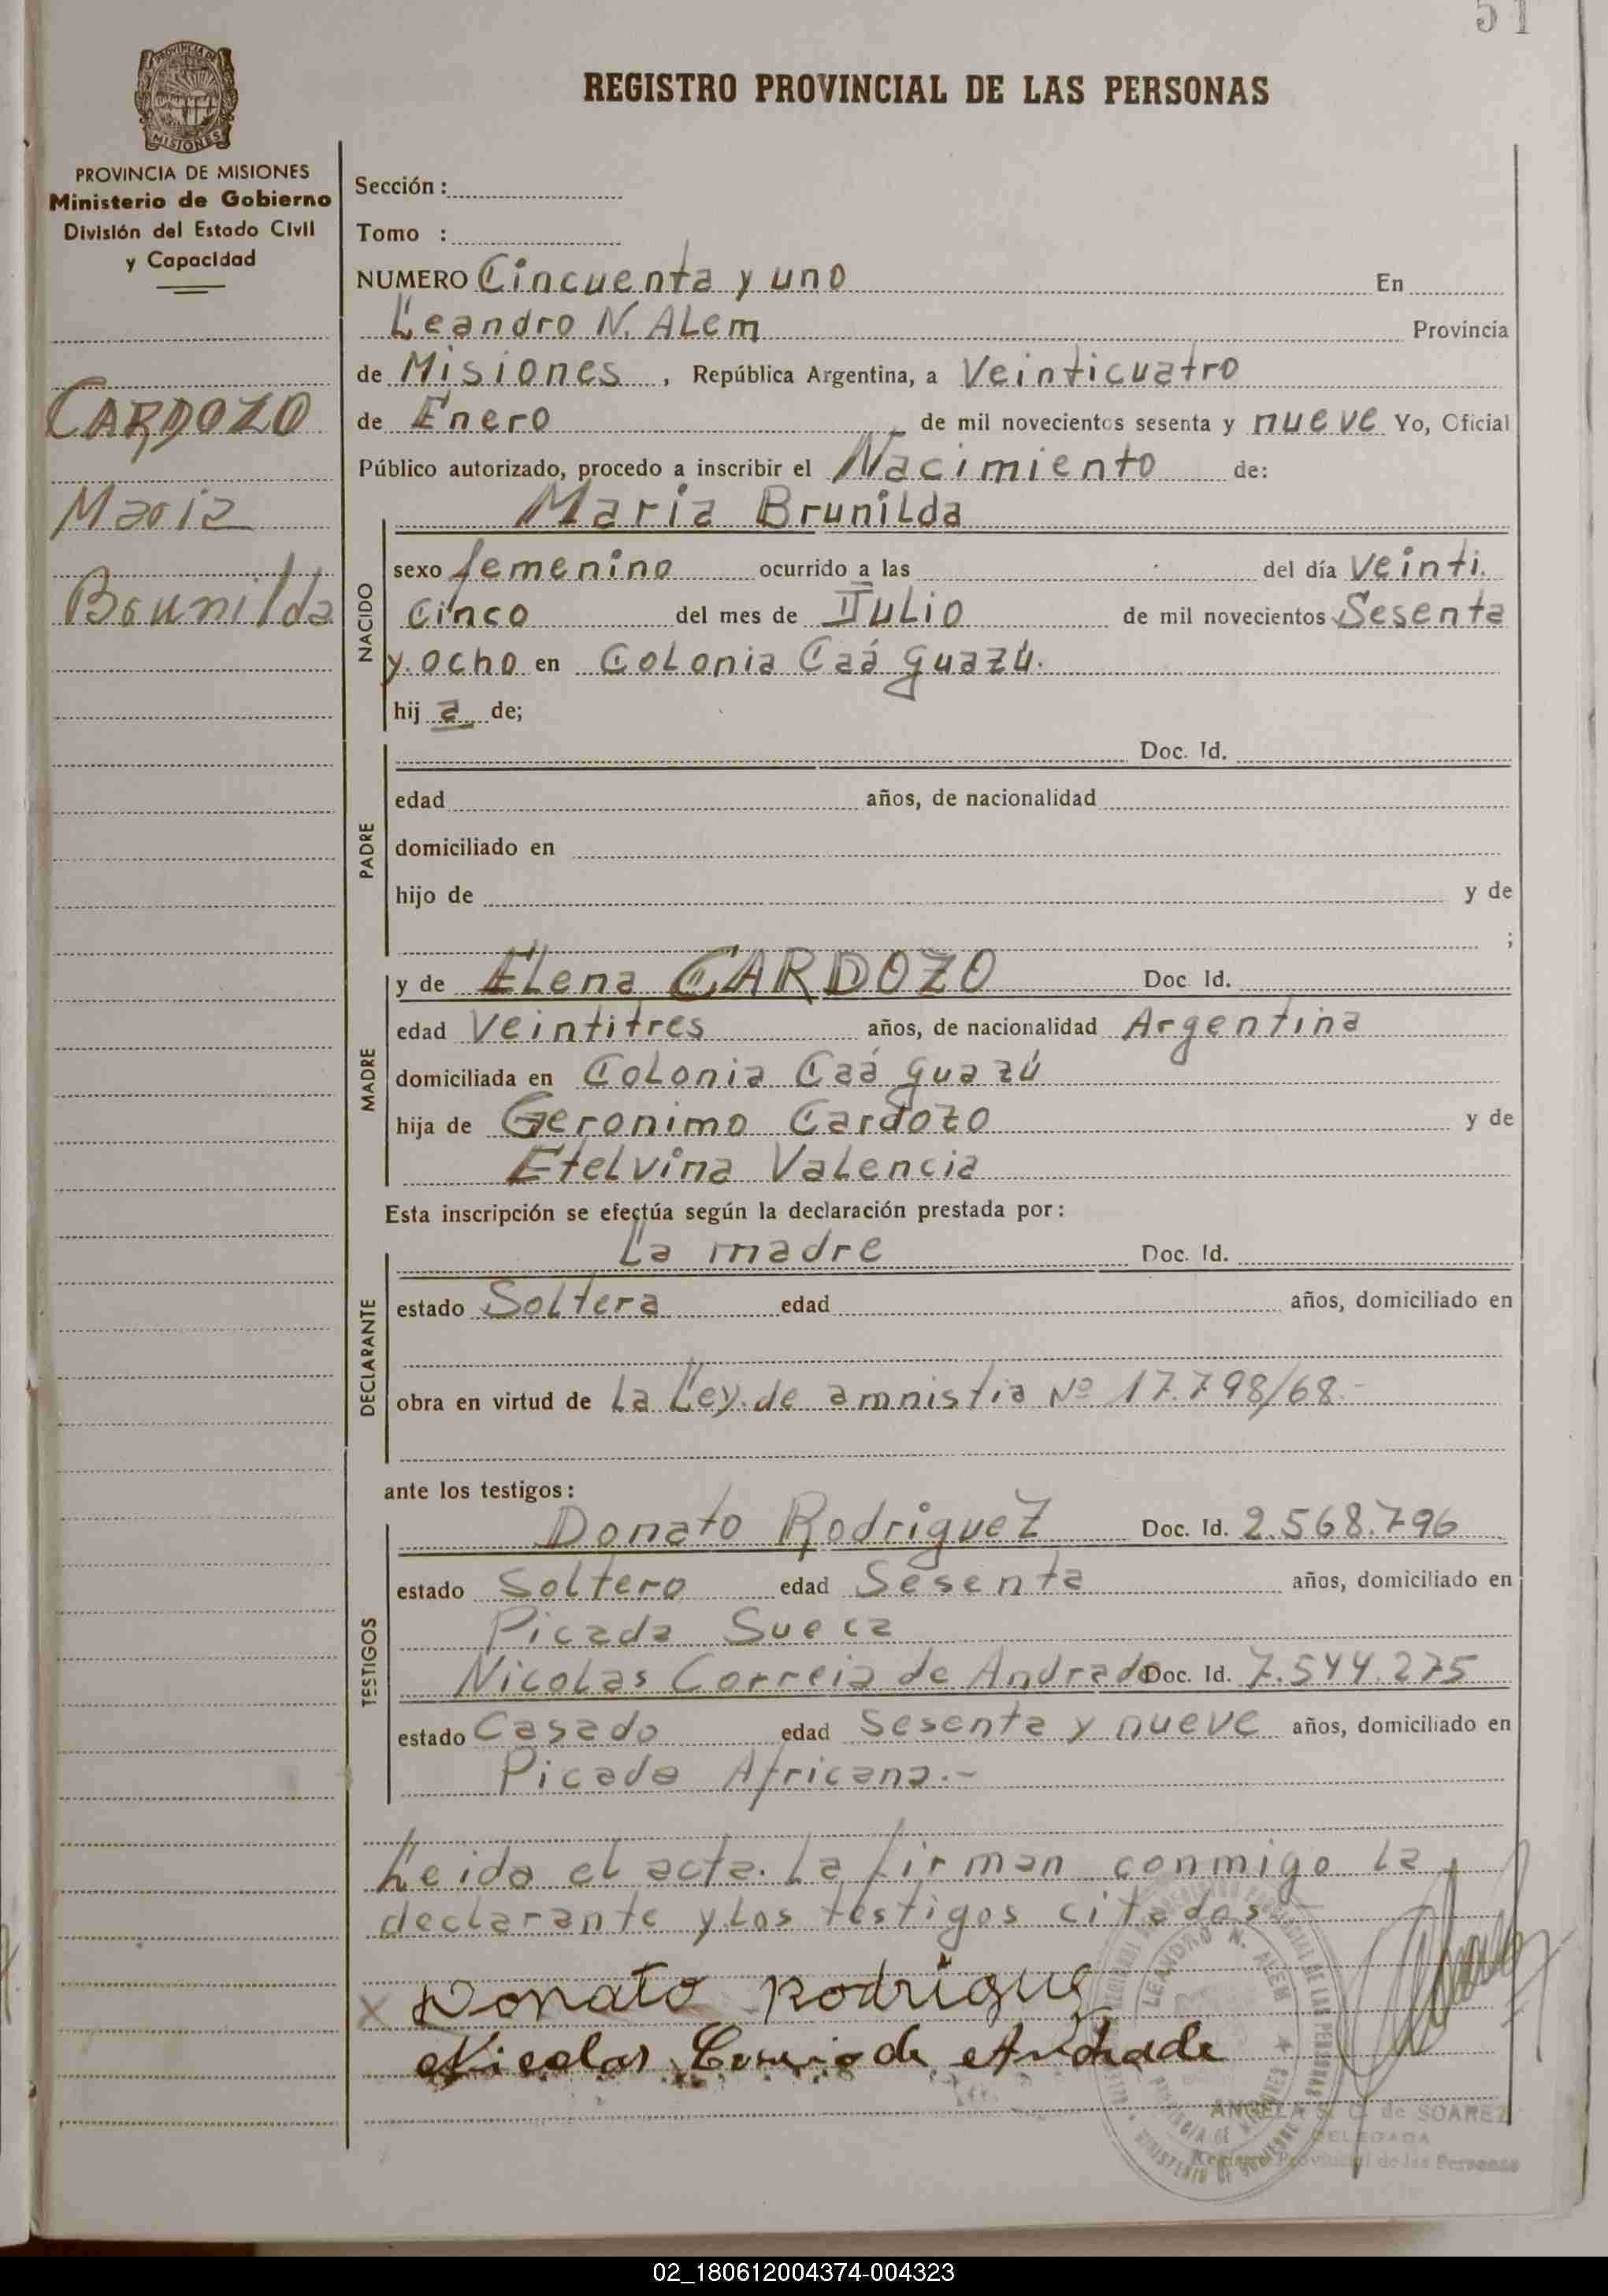 51
REGISTRO PROVINCIAL DE LAS PERSONAS
PROVINCIA DE MISIONES
Ministerio de Gobierno
División del Estado Civil
y Capacidad
CARDOZO
Maria
Brunilda
Sección :
Tomo :
NUMERO Cincuenta y uno En
Leandro N. ALem Provincia
de Misiones , República Argentina, a Veinticuatro
de Enero de mil novecientos sesenta y nueve Yo, Oficial
Público autorizado, procedo a inscribir el Nacimiento de:
Maria Brunilda
NACIDO
sexo femenino ocurrido a las del día veinti.
cinco del mes de JULio de mil novecientos Sesenta
y ocho en Colonia Caá guazú.
hij a de;
PADRE
Doc. Id.
edad años, de nacionalidad
domiciliado en
hijo de y de
;
MADRE
y de Elena CARDOZO Doc. Id.
edad Veintitres años, de nacionalidad Argentina
domiciliada en Colonia Caá guazú
hija de Geronimo Cardozo y de
Etelvina Valencia
Esta inscripción se efectúa según la declaración prestada por:
DECLARANTE
La madre Doc. Id.
estado Soltera edad años, domiciliado en
obra en virtud de La Ley de amnistia Nº 17.798/68.-
ante los testigos:
TESTIGOS
Donato Rodriguez Doc. Id. 2.568.796
estado Soltero edad Sesenta años, domiciliado en
Picada Sueca
Nicolas Correia de Andrade Doc. Id. 7.544.275
estado Casado edad Sesenta y nueve años, domiciliado en
Picada Africana.-
Leida el acta. La firman conmigo la
declarante y Los testigos citados
X Donato Rodrigue
Nicolas Correia de Andrade
LEANDRO N. ALEM
ANGELA S. C. de SOAREZ
DELEGADA
Registro Provincial de las Personas
02_180612004374-004323